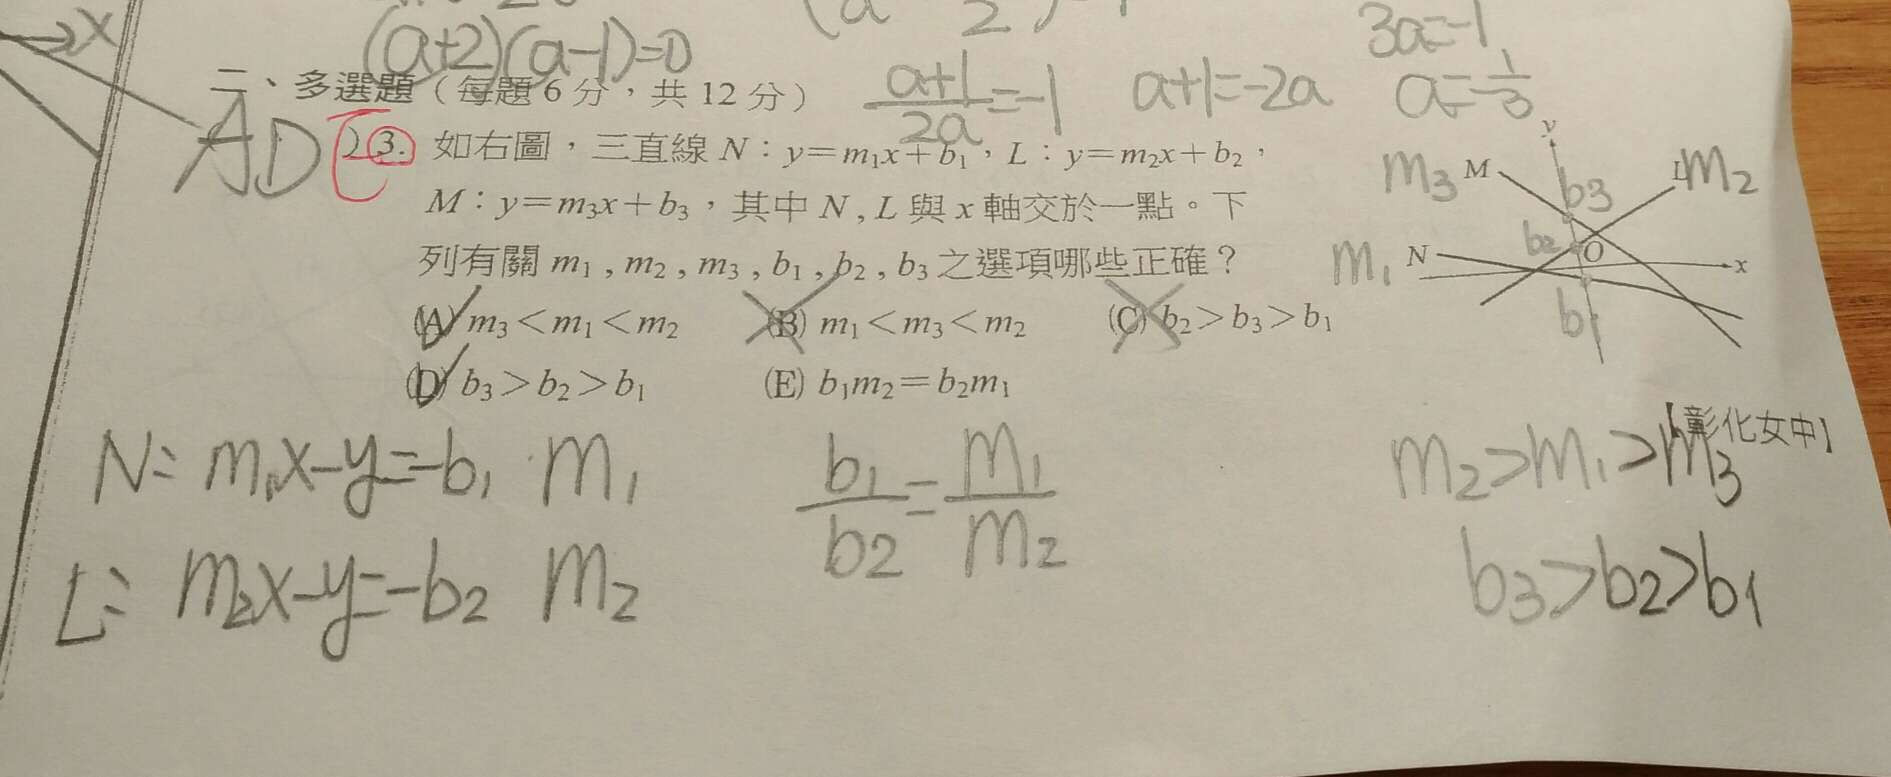 (a+2)(a-1)=0
3a=-1
二、多選題(每題6分,共12分)
a+1/2a=-1
a+1=-2a
a=-1/3
AD
)3. 如右圖,三直線 N:y=m₁x+b₁,L:y=m₂x+b₂,
M:y=m₃x+b₃,其中 N , L 與 x 軸交於一點。下
列有關 m₁ , m₂ , m₃ , b₁ , b₂ , b₃ 之選項哪些正確?
(A) m₃<m₁<m₂ (B) m₁<m₃<m₂ (C) b₂>b₃>b₁
(D) b₃>b₂>b₁ (E) b₁m₂=b₂m₁
【彰化女中】
y
m₃ M b₃ L m₂
m₁ N b₂ O x
b₁
x
N: m₁x-y=-b₁ m₁
L: m₂x-y=-b₂ m₂
b₁/b₂=m₁/m₂
m₂>m₁>m₃
b₃>b₂>b₁